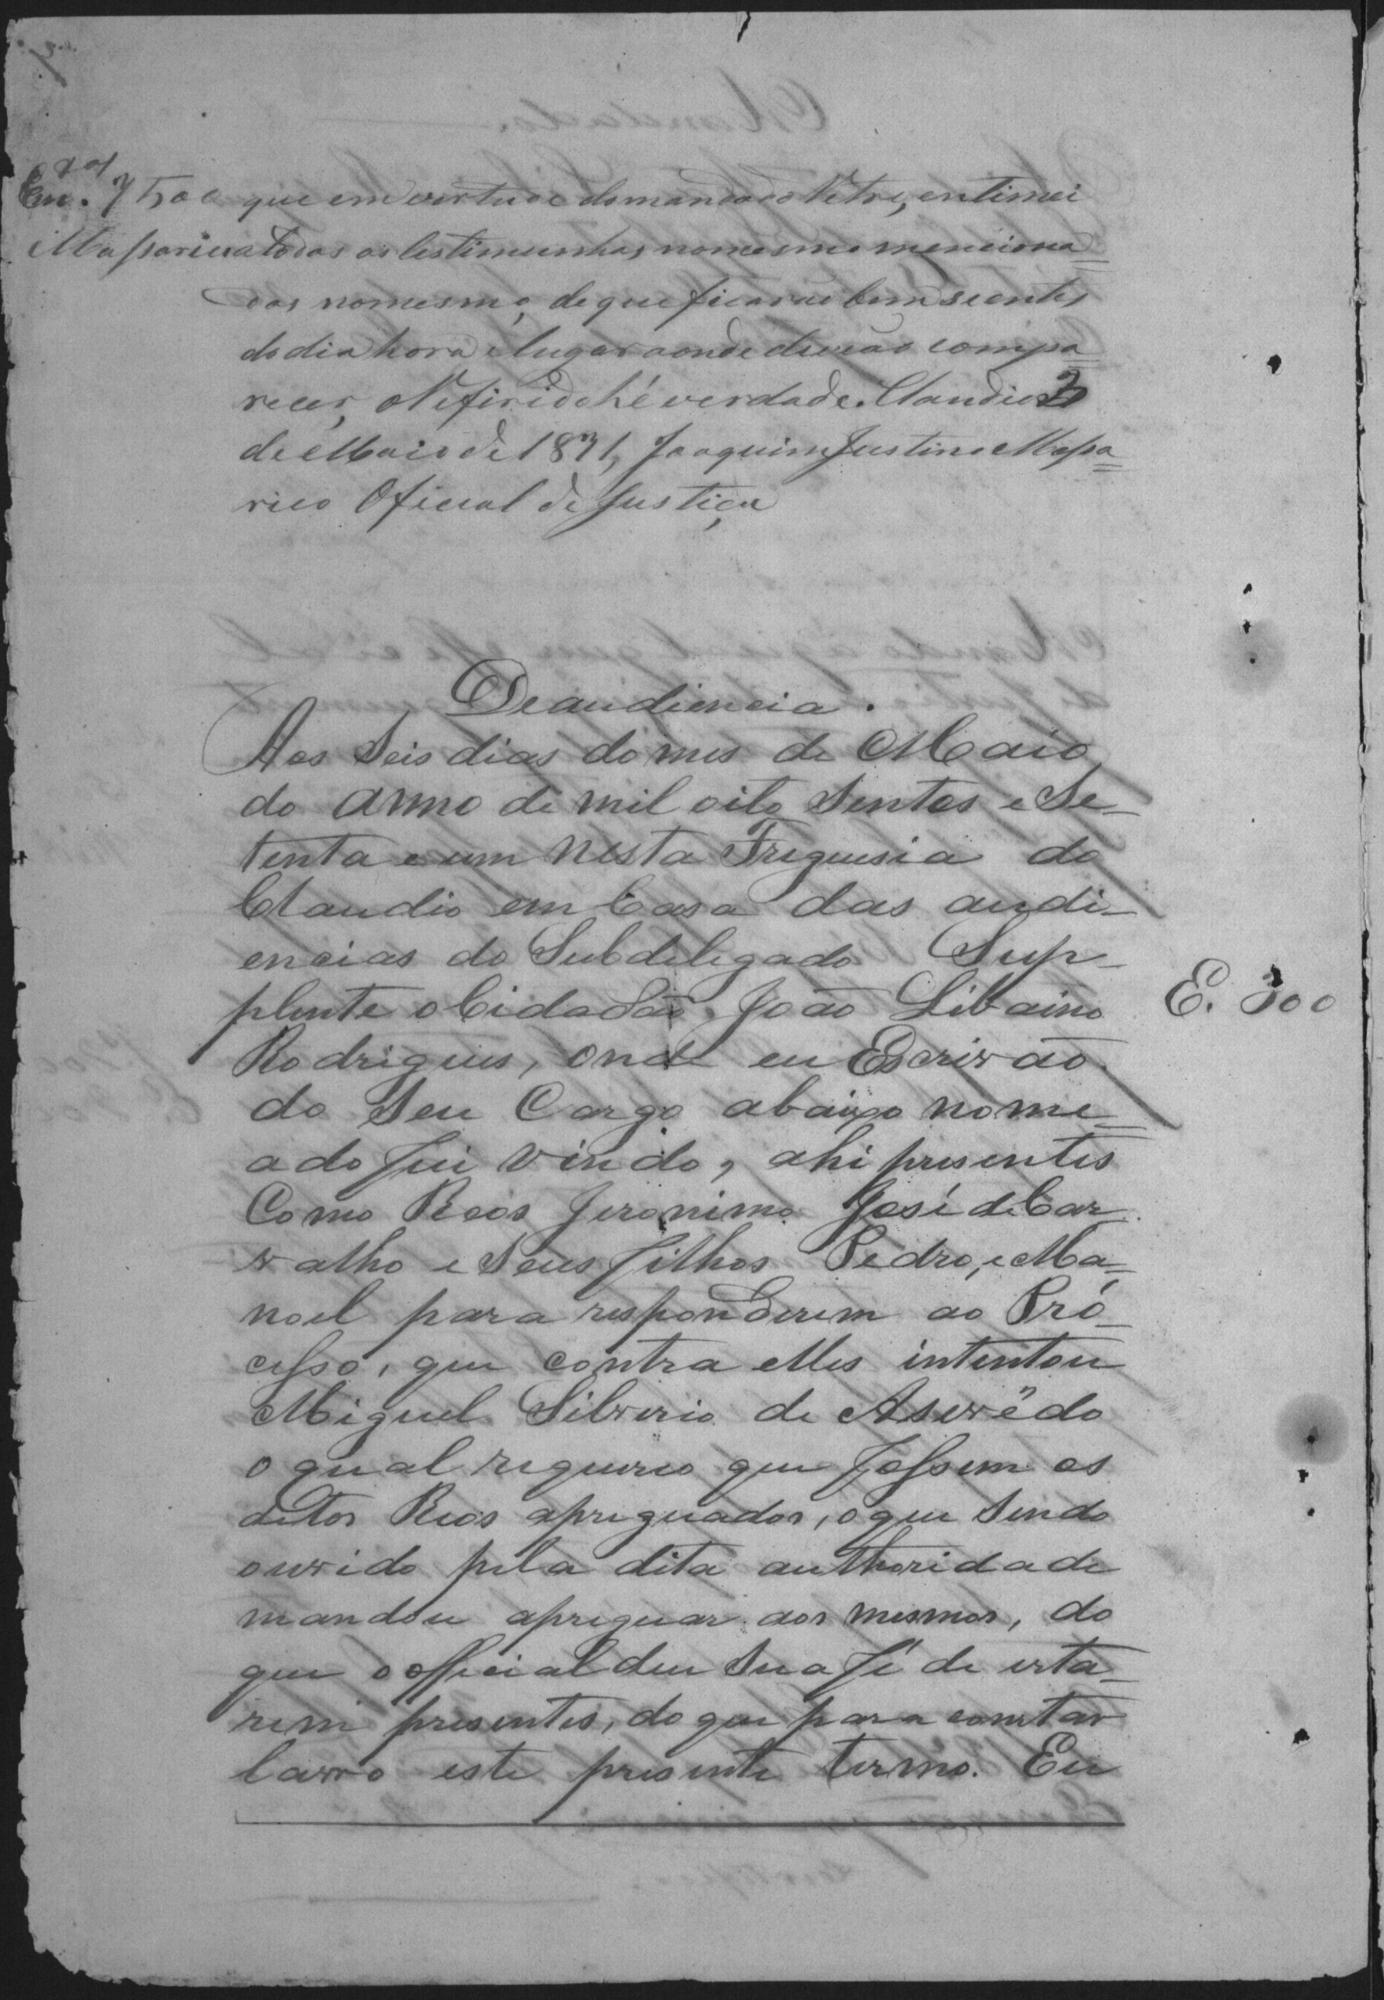 que em virtude do mandado Retro, entimei
Maparico todas as testimunhas nomesmo menciona=
das nomesmo, de que ficarão bem sientes
do dia hora e lugar aonde deverão compa=
recer, o Refirido hé verdade. Claudio 3
de Maio de 1871, Joaquim Justino Mapa=
rico Oficial de Justiça
Deaudiencia.
Aos Seis dias do mes de Maio
do anno de mil oito Sentos e Se-
tenta e um nesta Freguesia do
Claudio em Casa das audi-
encias do Subdelegado Sup-
plente o Cidadão João Libaino
E. 300
Rodrigues, onde eu Escrivão
do Seu Cargo abaixo nome=
ado fui vindo, ahi presentes
Como Reos Jeronimo José de Car
valho e Seus filhos Pedro, e Ma=
noel para responderem ao Pró-
cesso, que contra elles intentou
Miguel Silverio de Asevêdo
o qual requereo que fossem os
ditos Reos apreguados, o que Sendo
ouvido pela dita authoridade
mandou apreguar aos mesmos, do
que o official deu Sua fé de esta-
rem presentes, do que para constar
lavro este presente termo. Eu